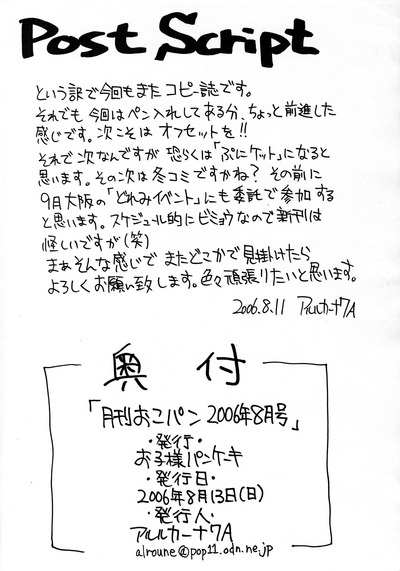 Post Script
という訳で今回もまたコピー誌です。
それでも今回はペン入れしてある分、ちょっと前進した
感じです。次こそはオフセットを!!
それで次なんですが恐らくは「ぷにケット」になると
思います。その次は冬コミですかね? その前に
9月大阪の「どれみイベント」にも委託で参加する
と思います。スケジュール的にビミョウなので新刊は
怪しいですが(笑)
まぁそんな感じでまたどこかで見掛けたら
よろしくお願い致します。色々頑張りたいと思います。
2006.8.11 アルルカーナ7A
奥付
「月刊おこパン 2006年8月号」
・発行・
お子様パンケーキ
・発行日・
2006年8月13日(日)
・発行人・
アルルカーナ7A
alroune@pop11.odn.ne.jp